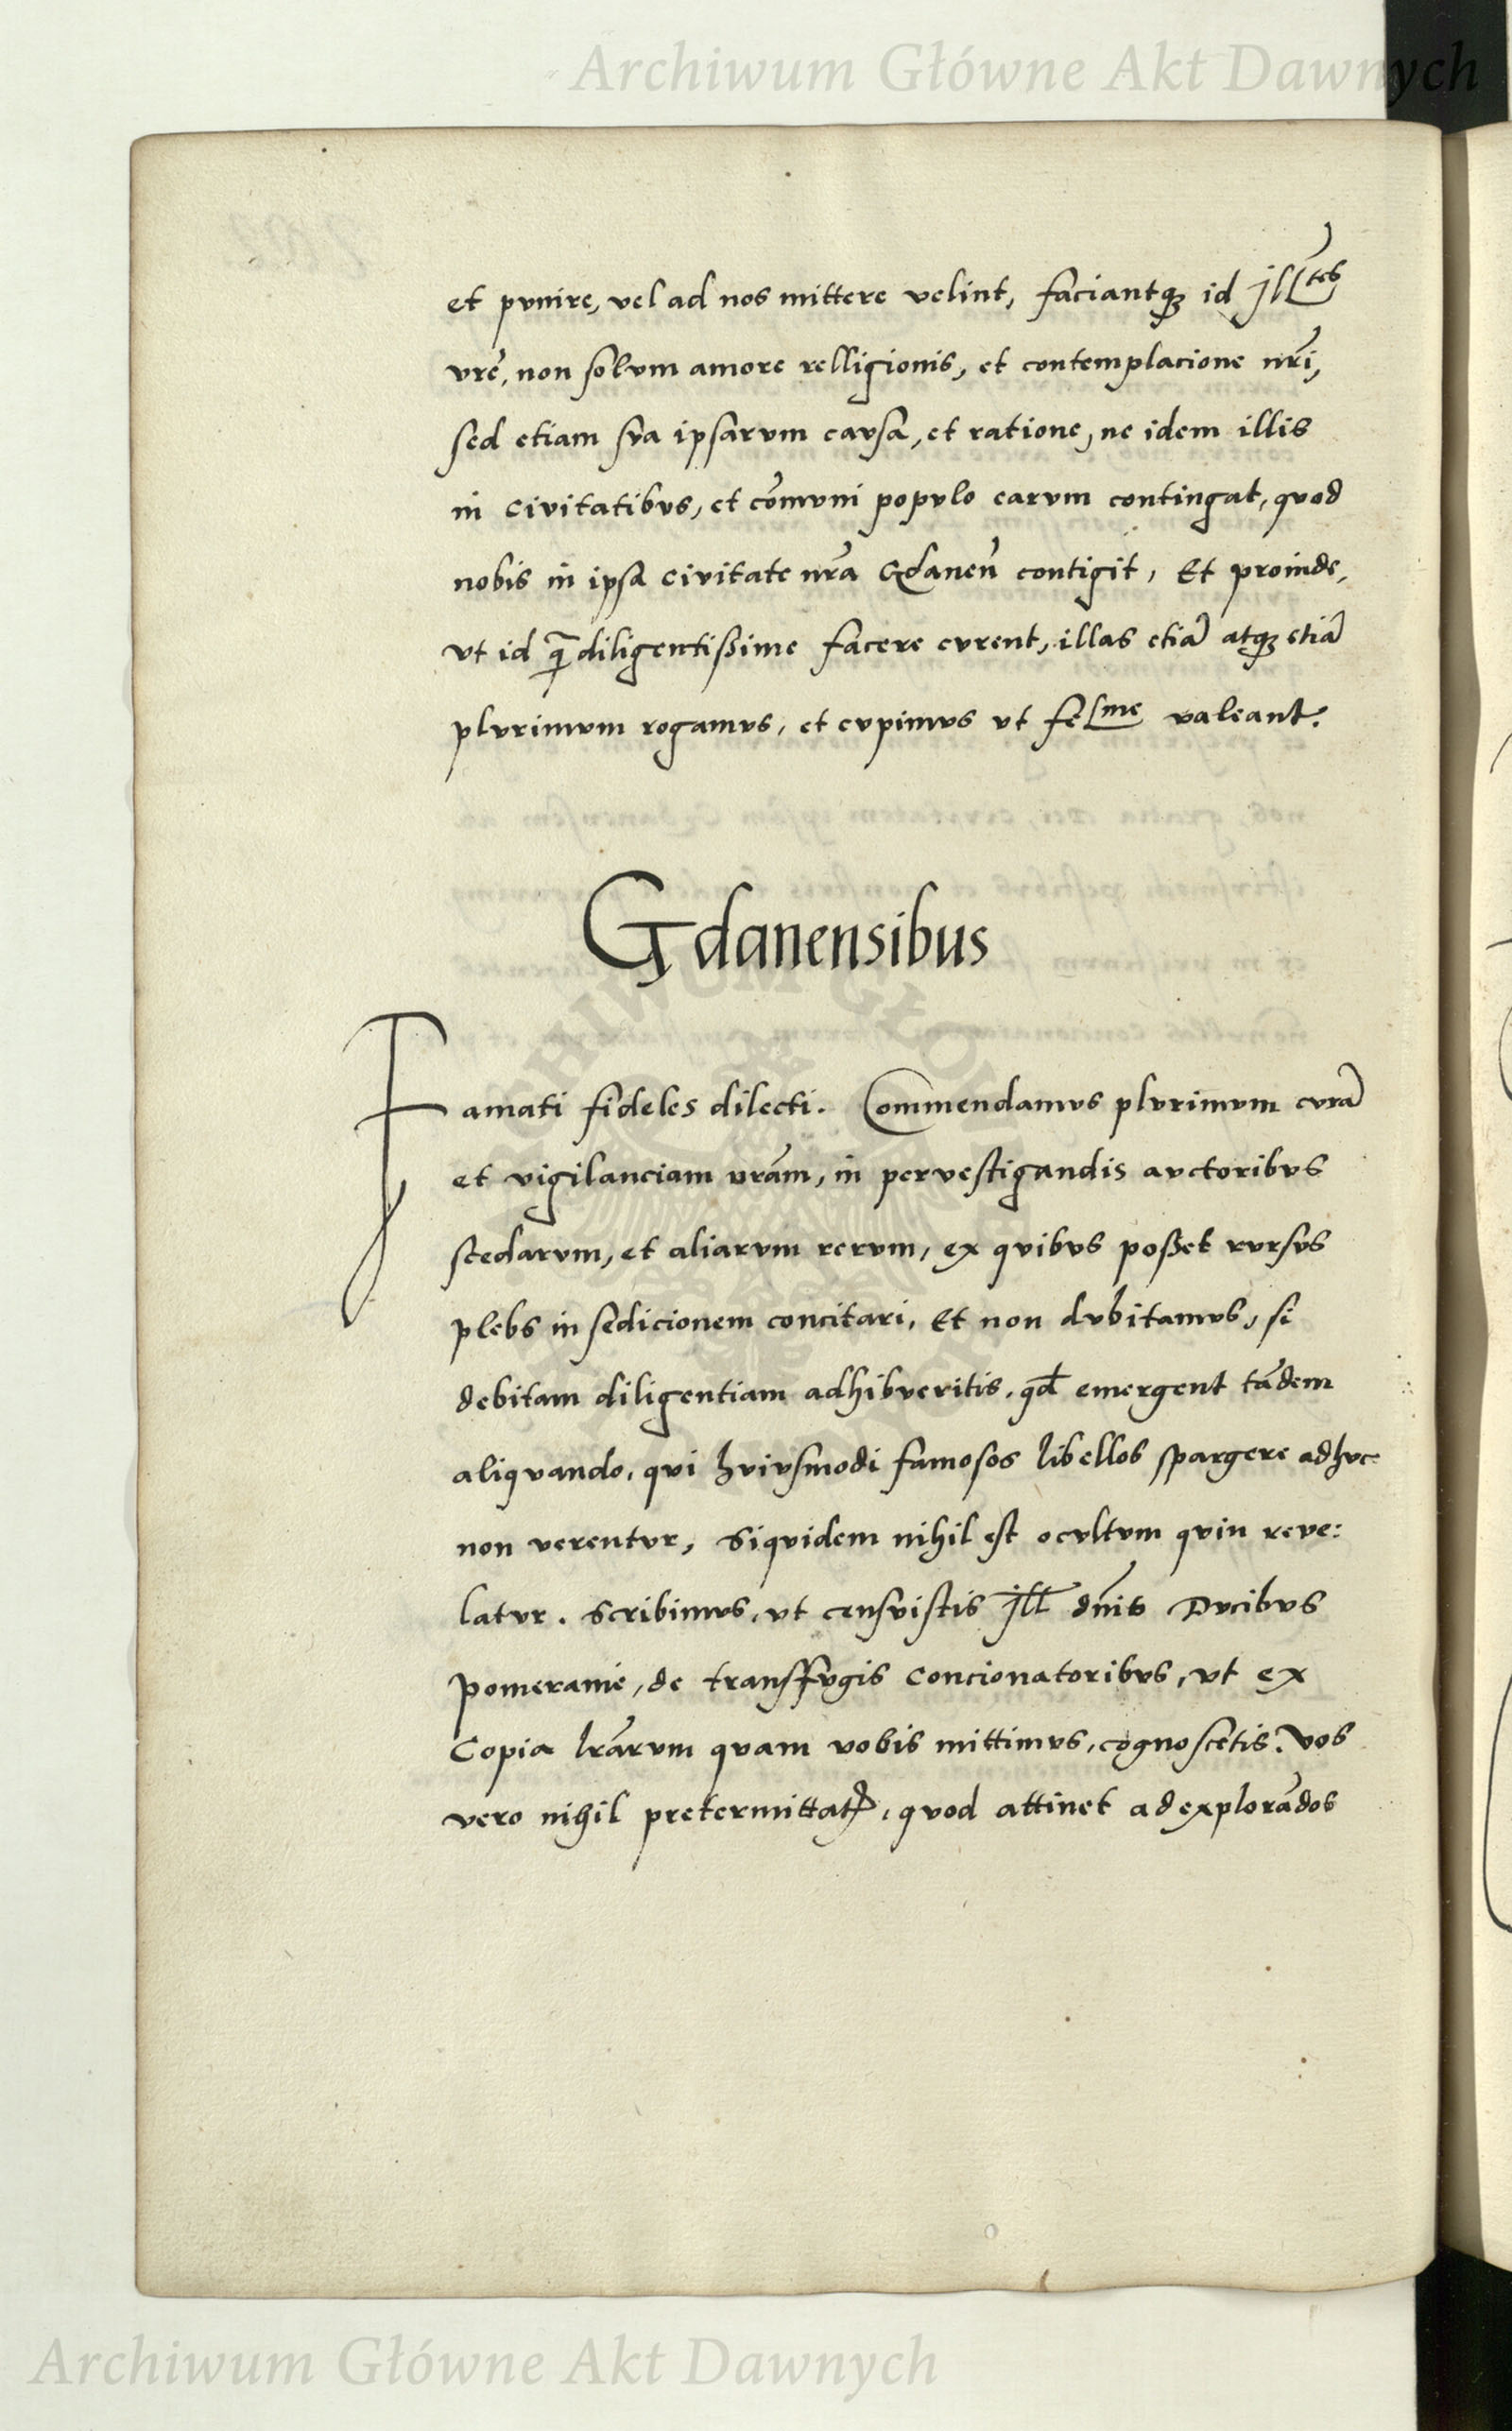 Archiwum Główne Akt Dawnych
et pvnire, vel ad nos mittere velint, faciantqꝫ id Jll^tes
vrē, non solvm amore relligionis, et contemplacione nrī,
sed etiam sva ipsarvm cavsa, et ratione, ne idem illis
in Civitatibvs, et cōmvni popvlo earvm contingat, qvod
nobis in ipsa Civitate nrā Gdaneñ contigit, Et proinde,
vt id q̄ diligentißime facere cvrent, illas etiā atqꝫ etiā
plvrimvm rogamvs, et cvpimvs vt fel^me valeant.
Gdanensibus
Famati fideles dilecti. Commendamvs plvrimvm cvrā
et vigilanciam vrām, in pervestigandis avctoribvs
scedarvm, et aliarvm rervm, ex qvibvs poßet rvrsvs
plebs in sedicionem concitari, Et non dvbitamvs, si
debitam diligentiam adhibveritis, qd̄ emergent tādem
aliqvando, qvi hvivsmodi famosos libellos spargere adhvc
non verentvr, Siqvidem nihil est ocvltvm qvin reve:
latvr. Scribimvs, vt censvistis Jll̄ dn̄is Dvcibvs
Pomeranie, de transffvgis Concionatoribvs, vt ex
Copia lrārvm qvam vobis mittimvs, cognoscetis. Vos
vero nihil pretermittatꝭ, qvod attinet ad explorādos
Archiwum Główne Akt Dawnych